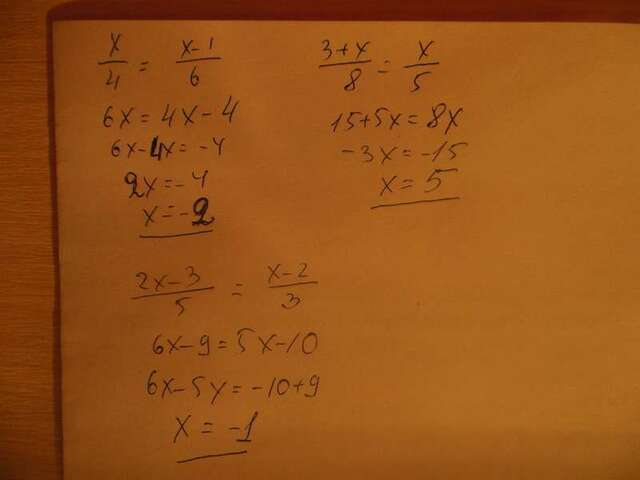 x/4 = x-1/6
6x = 4x - 4
6x - 4x = -4
2x = -4
x = -2
3+x/8 = x/5
15+5x = 8x
-3x = -15
x = 5
2x-3/5 = x-2/3
6x-9 = 5x-10
6x-5x = -10+9
x = -1